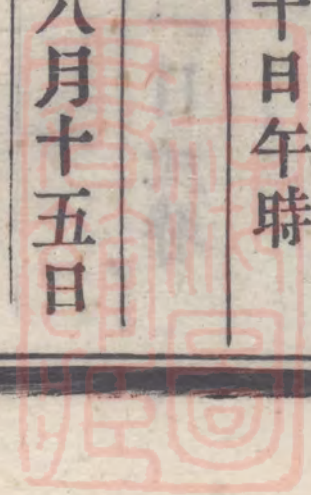 十日午時
八月十五日